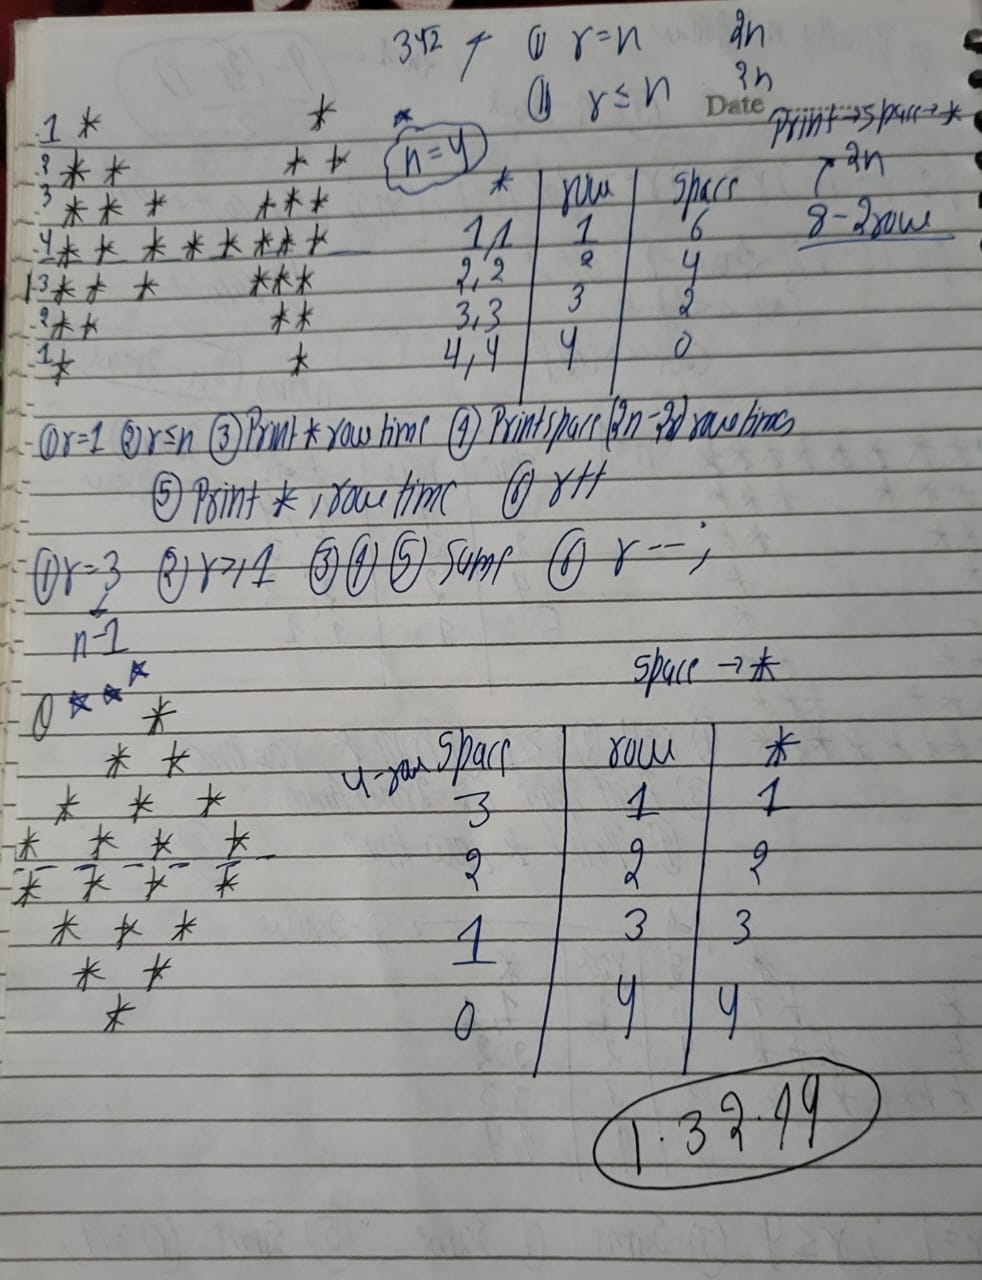 342 ① r=n 2n
② r ≤ n 2n
Date Print→space→*
1 * * n=4
2 * * * * * row space 2n
3 * * * * * * 8-2row
4 * * * * * * * * 1,1 1 6
2,2 2 4
3 * * * * * * 3,3 3 2
2 * * * * 4,4 4 0
1 * *
① r=1 ② r≤n ③ Print * row time ④ Print space (2n-2r) row times
⑤ Print *, row time ⑥ r++
① r=3 ② r>,1 ③ ④ ⑤ Same ⑥ r--;
n-1
space → *
*
* * 4-row space row *
* * * 3 1 1
* * * * 2 2 2
* * * *
* * * 1 3 3
* *
* 0 4 4
1.32.19